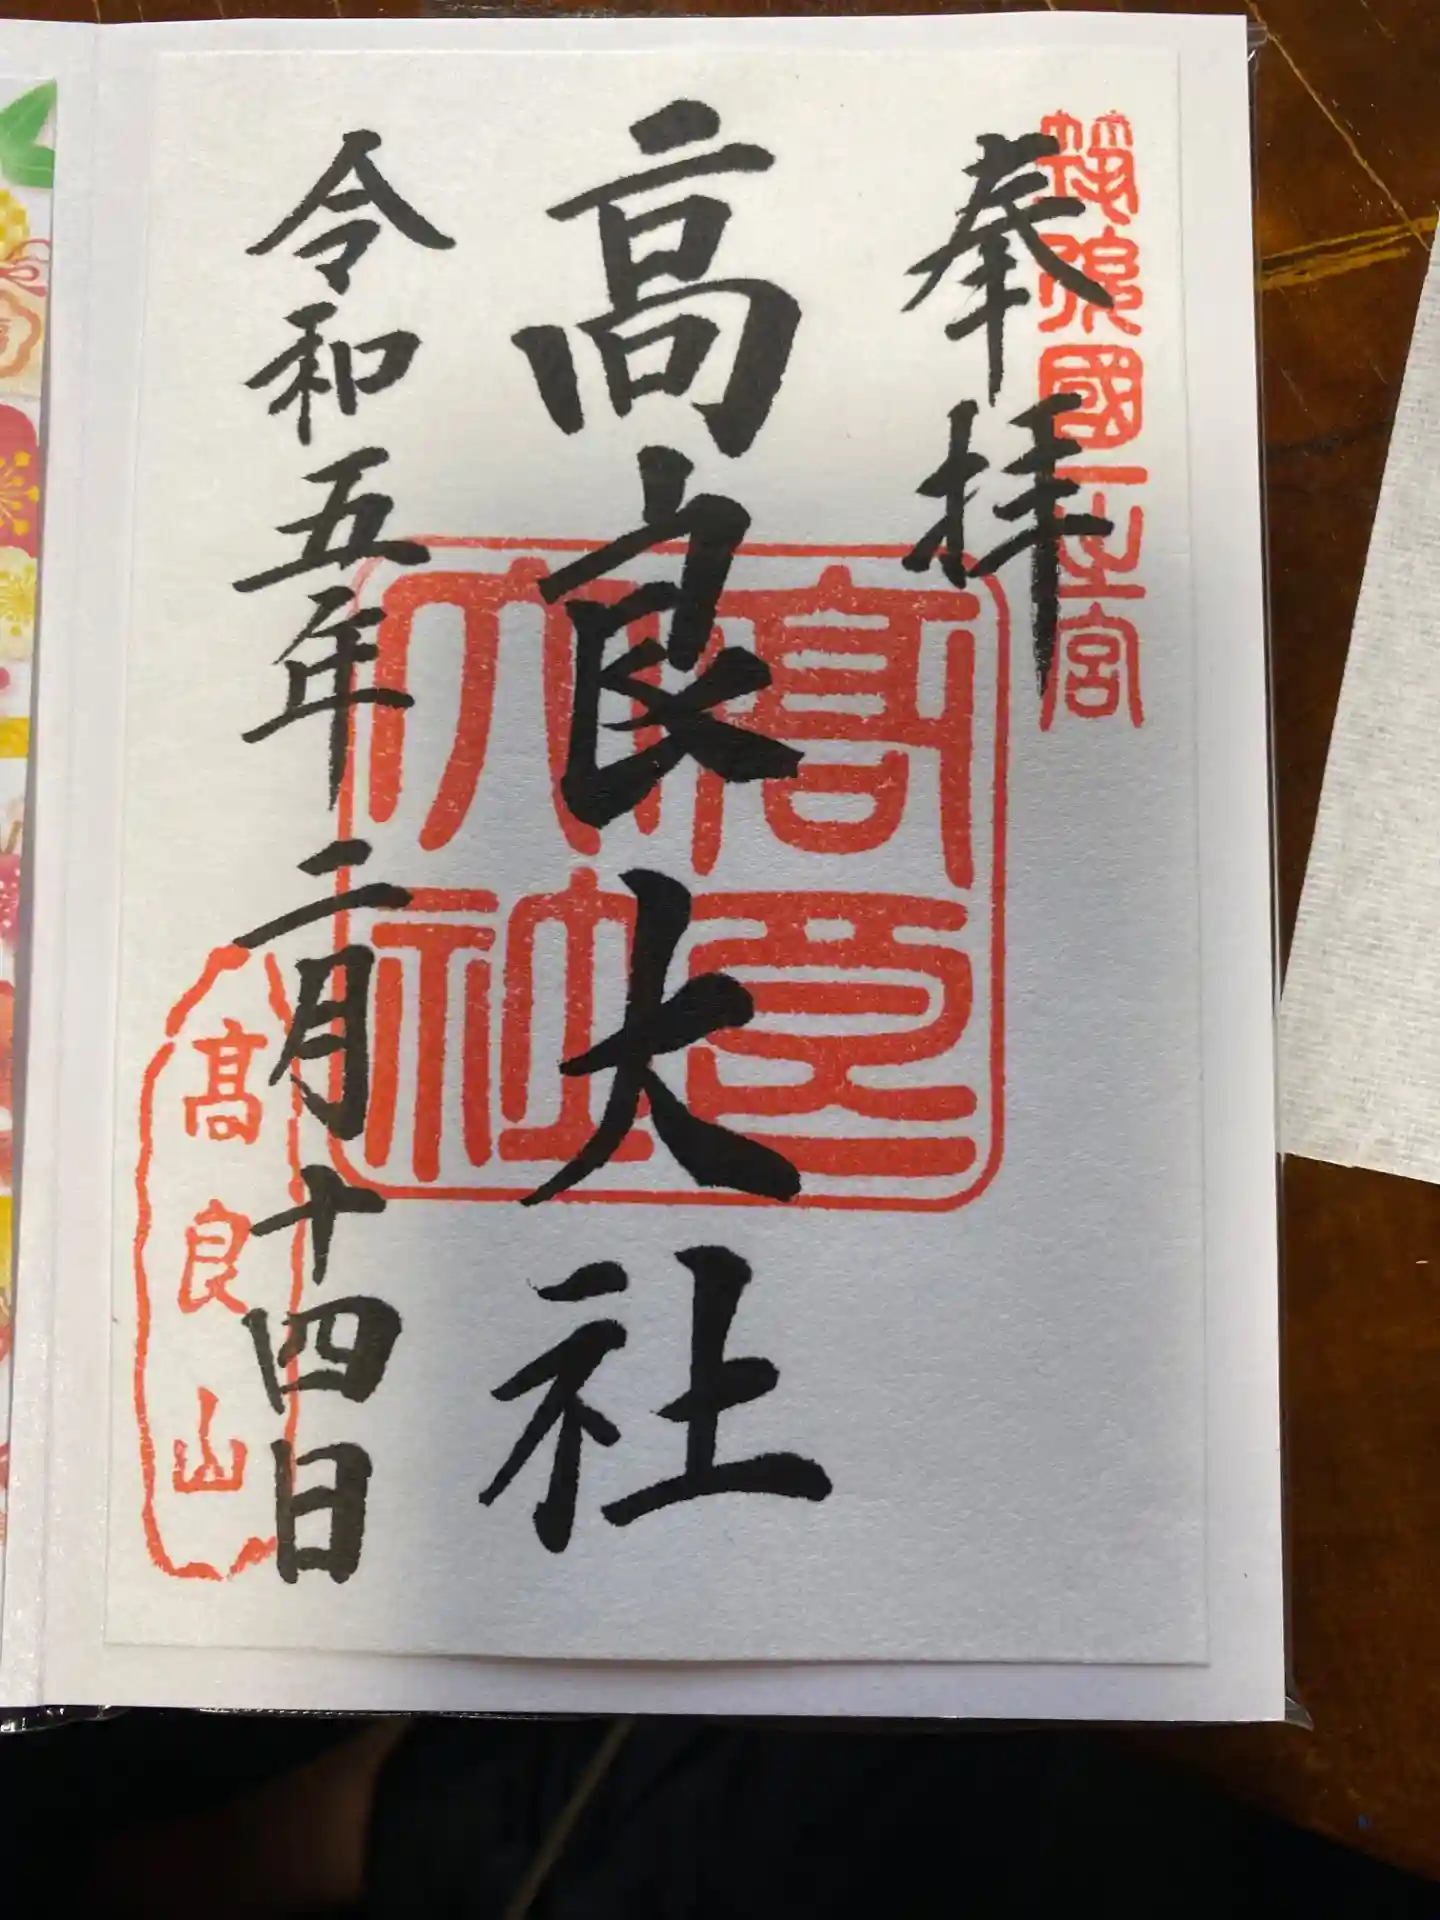 筑後國一之宮
奉拝
高良大社
高良大社
令和五年二月十四日
髙良山